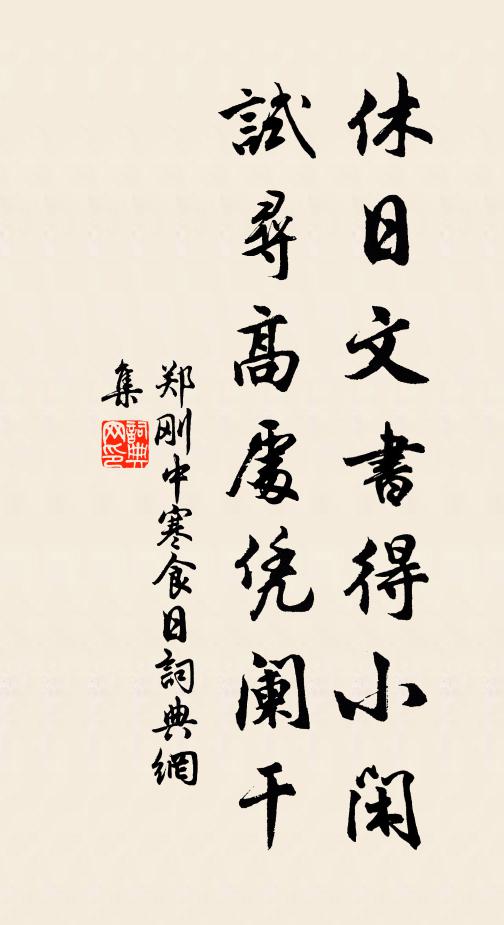 休日文書得小闲
試尋高處凭阑干
郑刚中寒食日詞典網
集
詞典网印